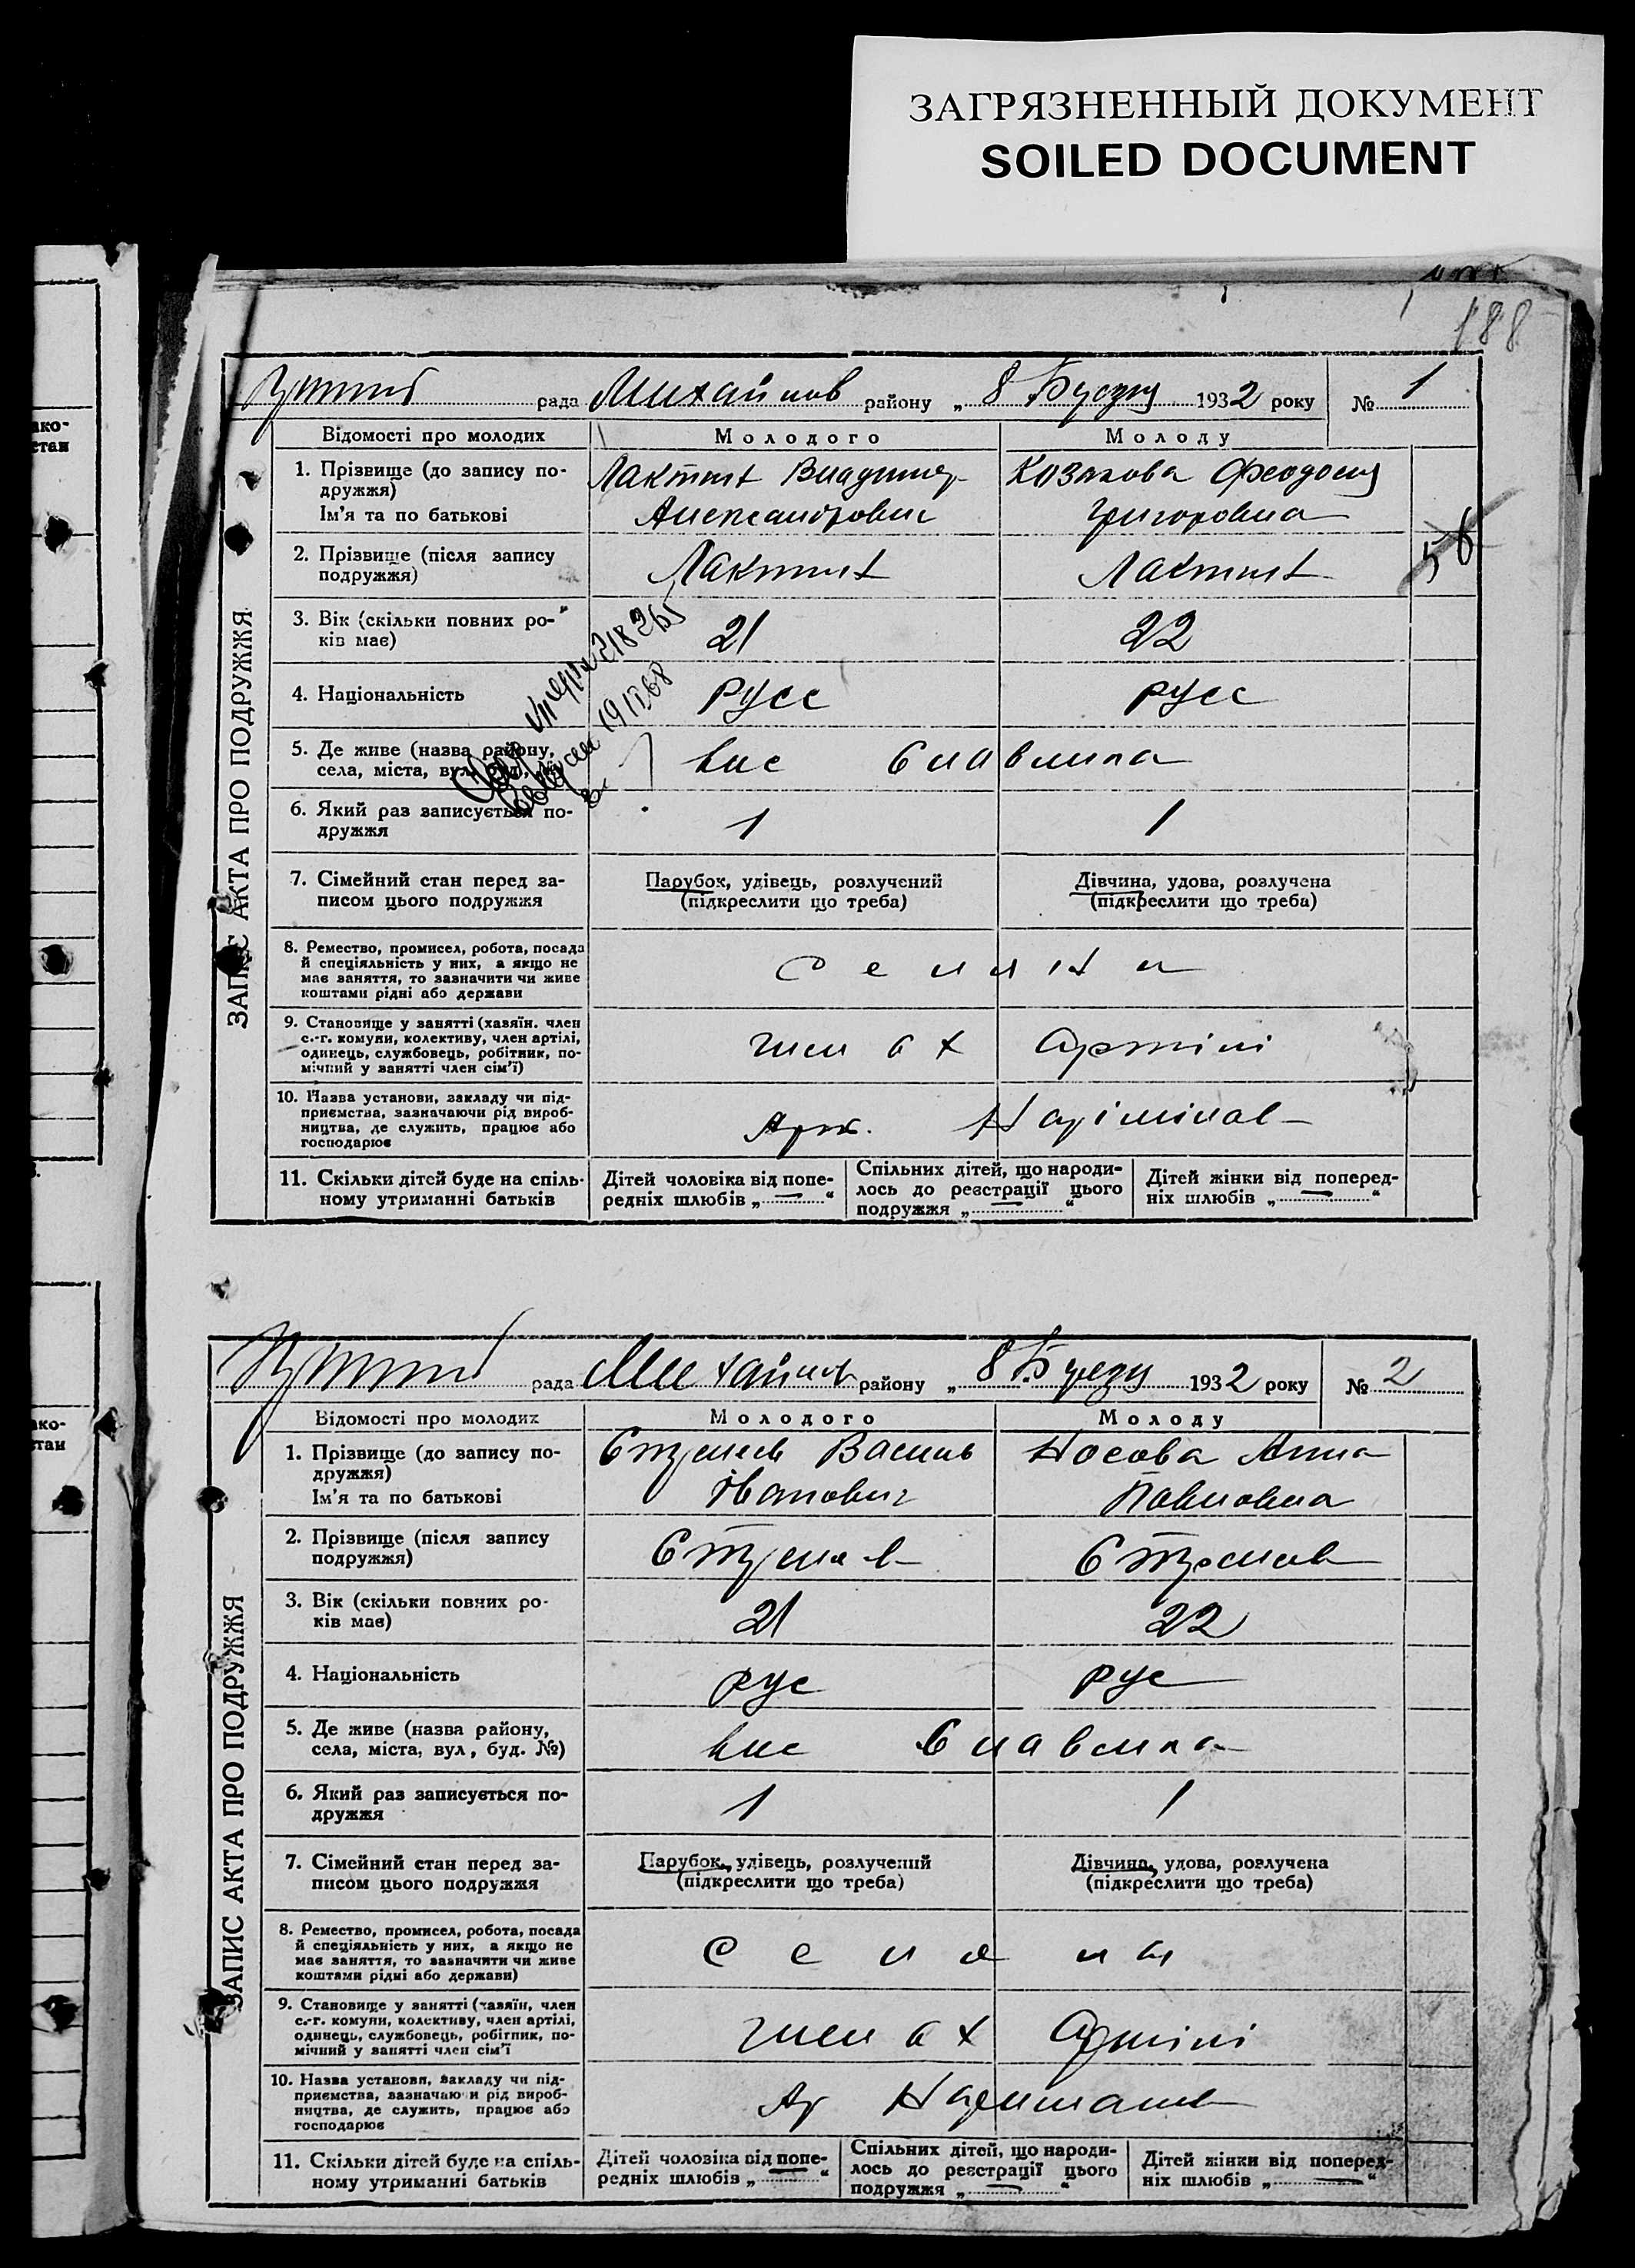 ЗАГРЯЗНЕННЫЙ ДОКУМЕНТ
SOILED DOCUMENT
188
рада Михайлов району „ 8 1932 року № 1
Відомості про молодих Молодого Молоду
1. Прізвище (до запису по-
дружжя)
Ім'я та по батькові
Лактион Владимир
Александрович
Козакова Феодосия
Григоровна
2. Прізвище (після запису
подружжя)
Лактион Лактион
56
3. Вік (скільки повних ро-
ків має)
21 22
4. Національність
русс русс
5. Де живе (назва району,
села, міста, вул
6. Який раз записується по-
дружжя
1 1
7. Сімейний стан перед за-
писом цього подружжя
Парубок, удівець, розлучений
(підкреслити що треба)
Дівчина, удова, розлучена
(підкреслити що треба)
8. Ремество, промисел, робота, посада
й спеціяльність у них, а якщо не
має заняття, то зазначити чи живе
коштами рідні або держави
9. Становище у занятті (хазяїн. член
с.-г. комуни, колективу, член артілі,
одинець, службовець, робітник, по-
мічний у занятті член сім'ї)
член с х Артілі
10. Назва установи, закладу чи під-
приємства, зазначаючи рід вироб-
ництва, де служить, працює або
господарює
11. Скільки дітей буде на спіль-
ному утриманні батьків
Дітей чоловіка від попе-
редніх шлюбів „ — “
Спільних дітей, що народи-
лось до реєстрації цього
подружжя „ — “
Дітей жінки від поперед-
ніх шлюбів „ — “
ЗАПИС АКТА ПРО ПОДРУЖЖЯ
рада Михайлов району „ 8 1932 року № 2
Відомості про молодих Молодого Молоду
1. Прізвище (до запису по-
дружжя)
Ім'я та по батькові
Василь
Іванович
Носова Анна
Павловна
2. Прізвище (після запису
подружжя)
3. Вік (скільки повних ро-
ків має)
21 22
4. Національність
рус рус
5. Де живе (назва району,
села, міста, вул, буд. №)
6. Який раз записується по-
дружжя
1 1
7. Сімейний стан перед за-
писом цього подружжя
Парубок, удівець, розлучений
(підкреслити що треба)
Дівчина, удова, розлучена
(підкреслити що треба)
8. Ремество, промисел, робота, посада
й спеціяльність у них, а якщо не
має заняття, то зазначити чи живе
коштами рідні або держави)
9. Становище у занятті (хазяїн, член
с.-г. комуни, колективу, член артілі,
одинець, службовець, робітник, по-
мічний у занятті член сім'ї
член с х Артілі
10. Назва установи, закладу чи під-
приємства, зазначаючи рід вироб-
ництва, де служить, працює або
господарює
11. Скільки дітей буде на спіль-
ному утриманні батьків
Дітей чоловіка від попе-
редніх шлюбів „ — “
Спільних дітей, що народи-
лось до реєстрації цього
подружжя „ — “
Дітей жінки від поперед-
ніх шлюбів „ — “
ЗАПИС АКТА ПРО ПОДРУЖЖЯ